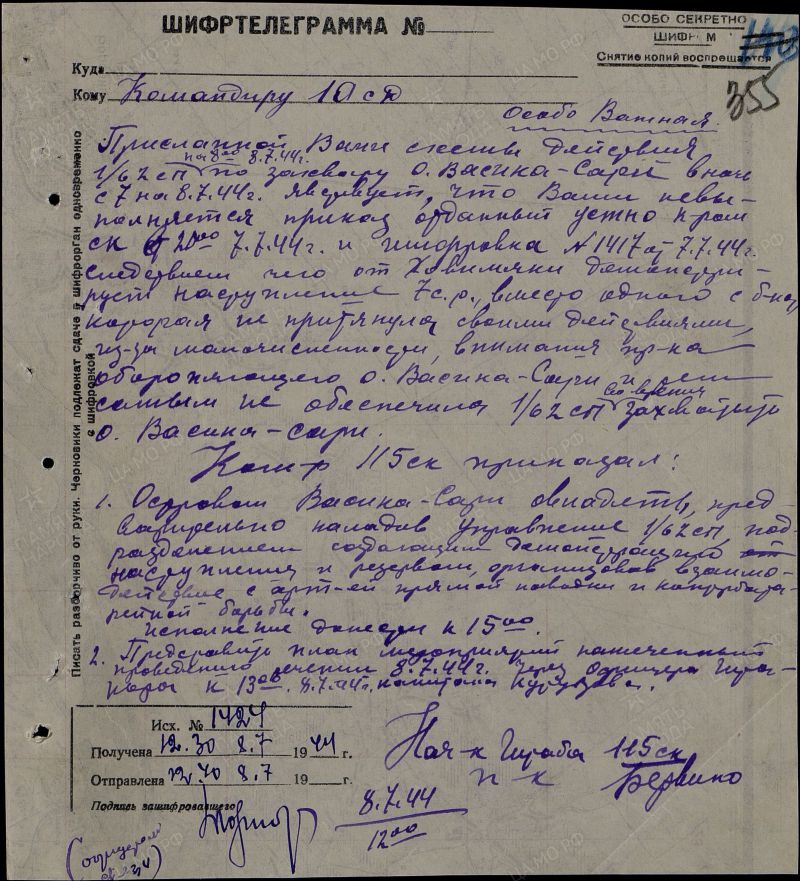 ШИФРТЕЛЕГРАММА №
ОСОБО СЕКРЕТНО
ШИФРОМ
Снятие копий воспрещается
143
355
Куда
Кому Командиру 10 сд
Особо Важная
Присланной Вами схемы действия
на 8 00 8.7.44г.
1/62 сп по захвату о. Васика-Сари в ночь
с 7 на 8.7.44г. явствует, что Вами невы-
полняется приказ отданный устно
ск 20 00 7.7.44г. и шифровка №1417 от 7.7.44г.
следствием чего от демонстри-
рует наступление 7 с.р., вместо одного с б-на,
которая не притянула своими действиями,
из-за малочисленности, внимания пр-ка
обороняющего о. Васика-Сари и тем
самым не обеспечила 1/62 сп
о. Васика-сари.
Ком-р 115 ск приказал:
1. Островом Васика-Сари овладеть, пред-
варительно наладив управление 1/62 сп, под-
разделением создающим демонстрацию
наступления и резервом, организовав взаимо-
действие с арт-ей прямой наводки и контрбата-
рейной борьбы.
Исполнение донести к 15 00.
2. Представить план мероприятий намеченный
проведению течении 8.7.44г. через офицера Шта-
кора к 13 00 8.7.44г. капитана
Исх. № 1424
Получена 12.30 8.7 1944 г.
Отправлена 12.40 8.7 19 г.
Подпись зашифровавшего
Нач-к Штаба 115 ск
п-к
8.7.44
12 00
Писать разборчиво от руки. Черновики подлежат сдаче в шифрорган одновременно
с шифровкой
ЦАМО.РФ